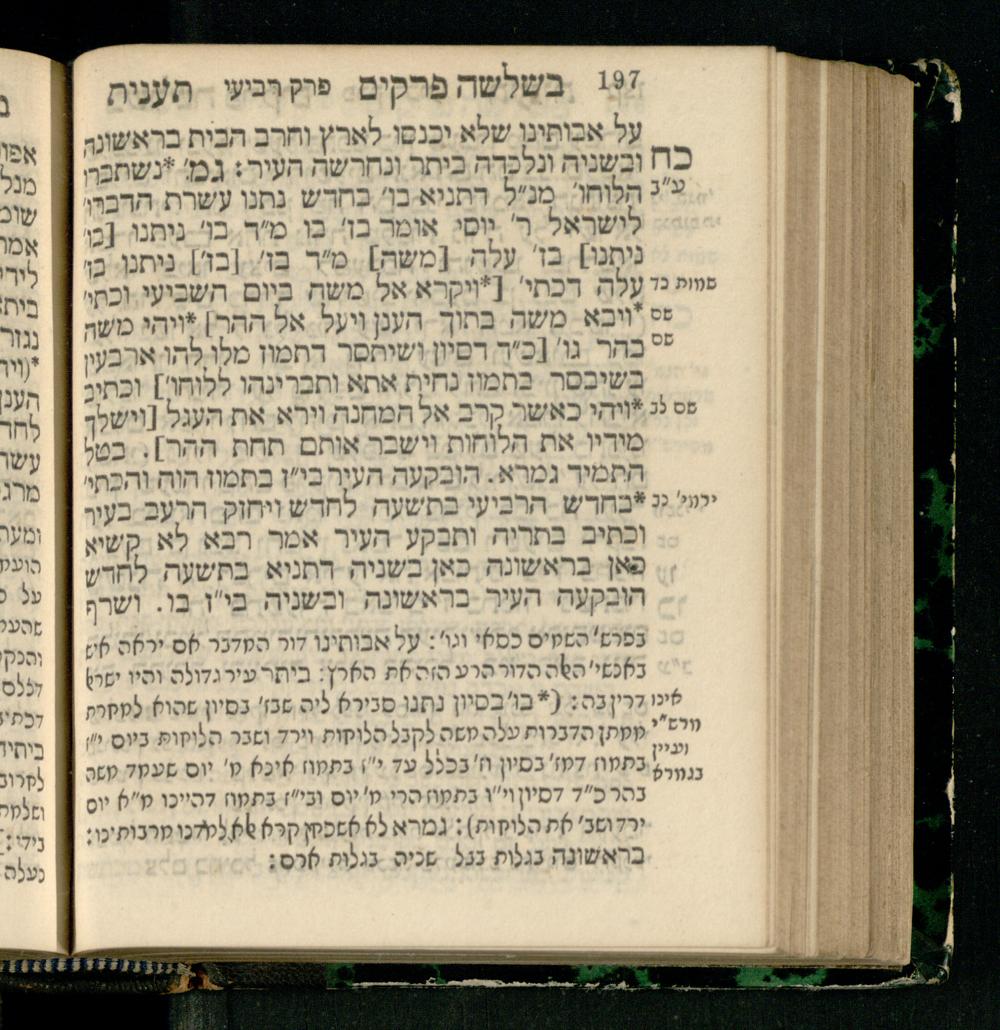 197 בשלשה פרקים פרק רביעי תענית
על אבותינו שלא יכנסו לארץ וחרב הבית בראשונה
כח ובשניה ונלכדה ביתר ונחרשה העיר : גמ׳ *נשתברו
ע״ב הלוחו׳ מנ״ל דתניא בו׳ בחדש נתנו עשרת הדברו׳
לישראל ר׳ יוסי אומר בז׳ בו מ״ד בו׳ ניתנו [בו׳
ניתנו] בז׳ עלה [משה] מ״ד בז׳ [בז׳] ניתנו בז׳
שמות כד עלה דכתי׳ [*ויקרא אל משה ביום השביעי וכתי׳
שם *ויבא משה בתוך הענן ויעל אל ההר] *ויהי משה
שם בהר גו׳ [כ״ד דסיון ושיתסר דתמוז מלו להו ארבעין
בשיבסר בתמוז נחית אתא ותברינהו ללוחו׳] וכתיב
שם לב *ויהי כאשר קרב אל המחנה וירא את העגל [וישלך
מידיו את הלוחות וישבר אותם תחת ההר]. בטל
התמיד גמרא. הובקעה העיר בי״ז בתמוז הוה והכתי׳
ירמי׳ נב *בחדש הרביעי בתשעה לחדש ויחזק הרעב בעיר
וכתיב בתריה ותבקע העיר אמר רבא לא קשיא
כאן בראשונה כאן בשניה דתניא בתשעה לחדש
הובקעה העיר בראשונה ובשניה בי״ז בו. ושרף
בפרש׳ השמים כסאי וגו׳ : על אבותינו דור המדבר אם יראה איש
באנשי׳ האלה הדור הרע הזה את הארץ : ביתר עיר גדולה והיו ישראל
אינו דרין בה : (*בו׳ בסיון נתנו סבירא ליה שבז׳ בסיון שהוא למחרת
מרש״י ממתן הדברות עלה משה לקבל הלוחות וירד ושבר הלוחות ביום י״ז
ועיין בתמוז דמז׳ בסיון וז׳ בכלל עד י״ז בתמוז איכא מ׳ יום שעמד משה
בגמרא בהר כ״ד דסיון וי״ו בתמוז הרי מ׳ יום ובי״ז בתמוז דהיינו מ״א יום
ירד ושב׳ את הלוחות) : גמרא לא אשכחן קרא אלא למדנו מרבותינו :
בראשונה בגלות בבל שניה בגלות ארם :